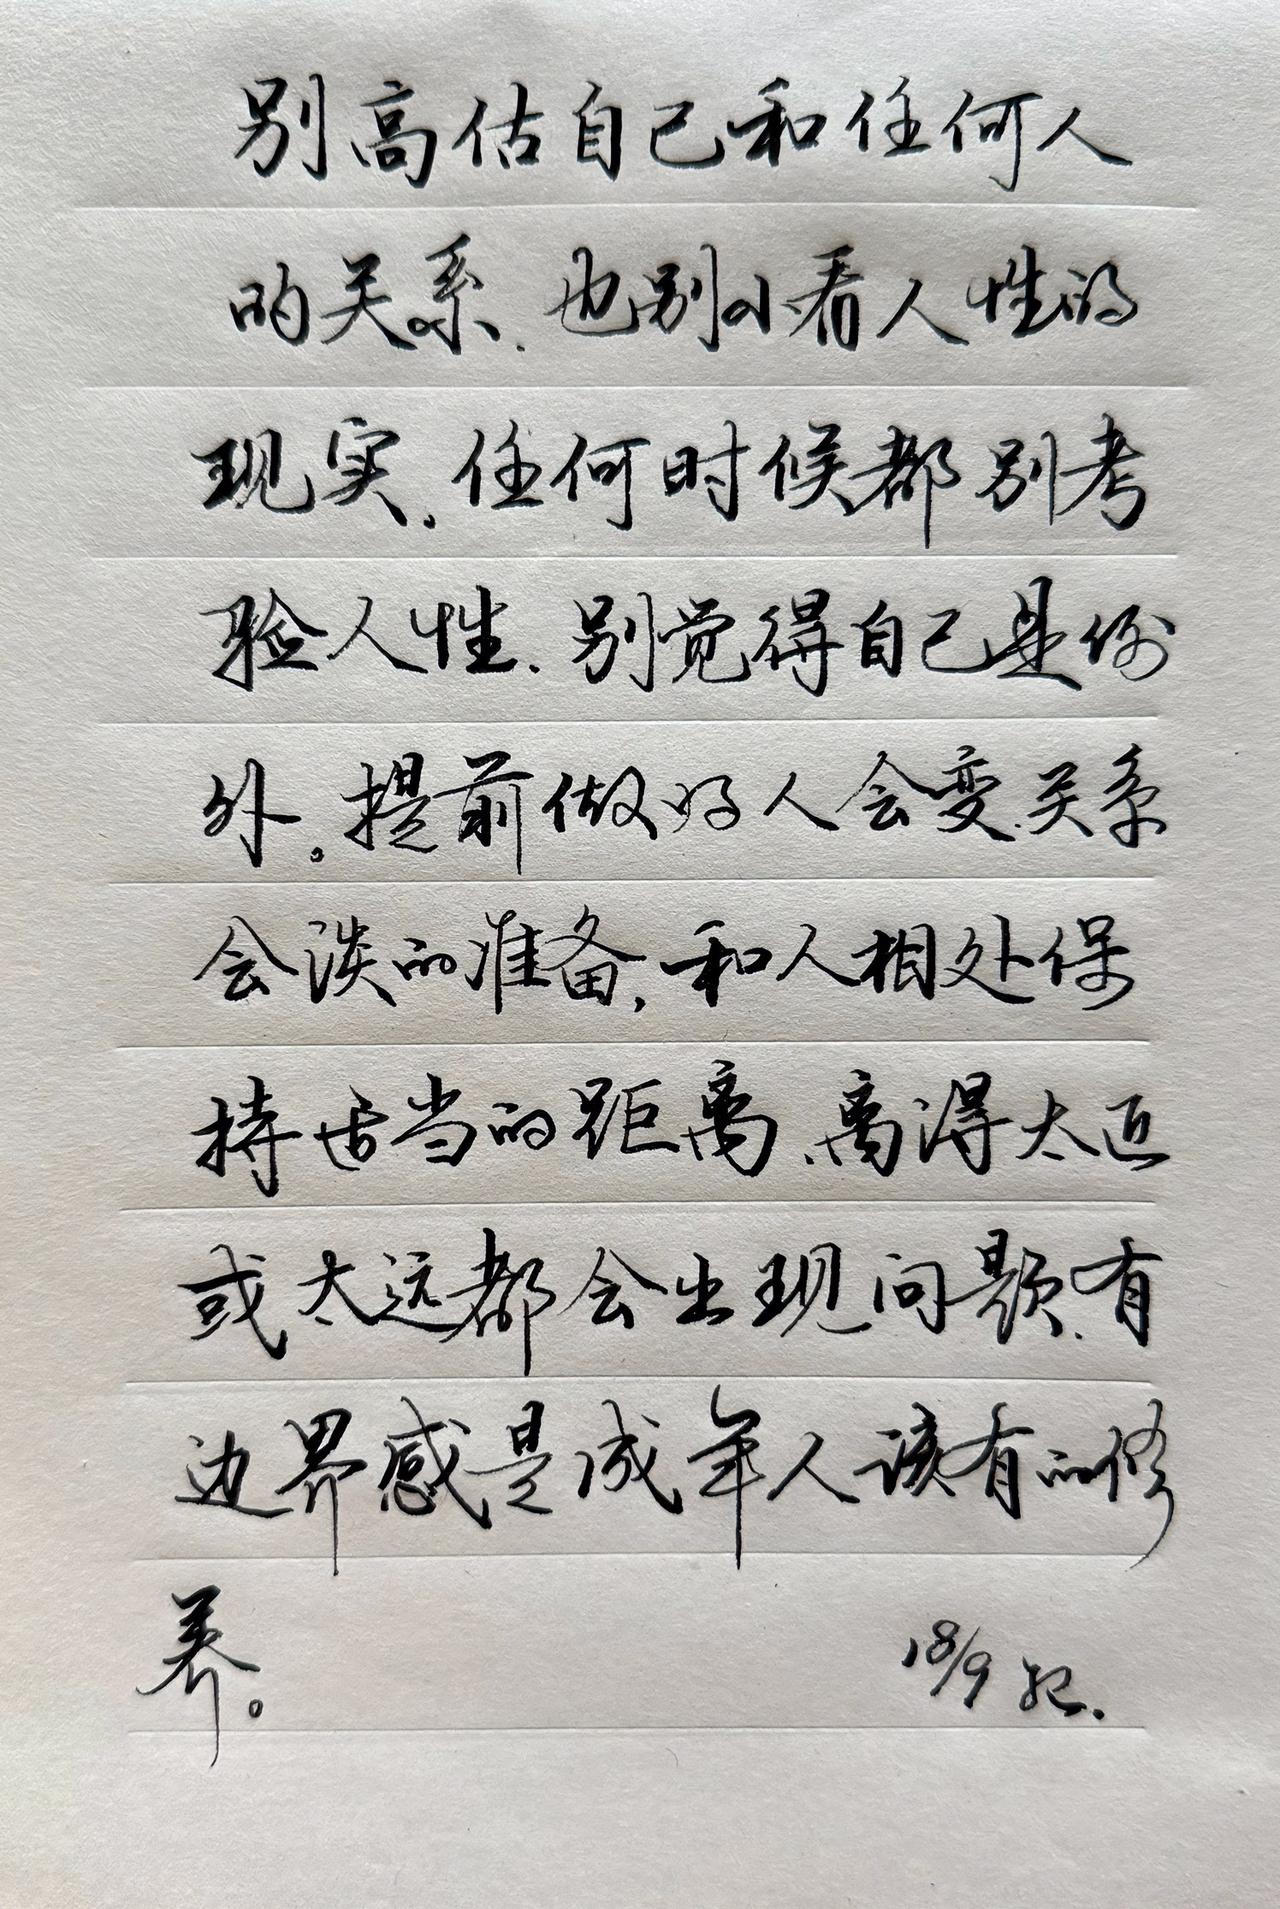 别高估自己和任何人
的关系、也别小看人性的
现实。任何时候都别考
验人性、别觉得自己是例
外。提前做好人会变、关系
会淡的准备,和人相处保
持适当的距离、离得太近
或太远都会出现问题、有
边界感是成年人该有的修
养。
18/9 记.